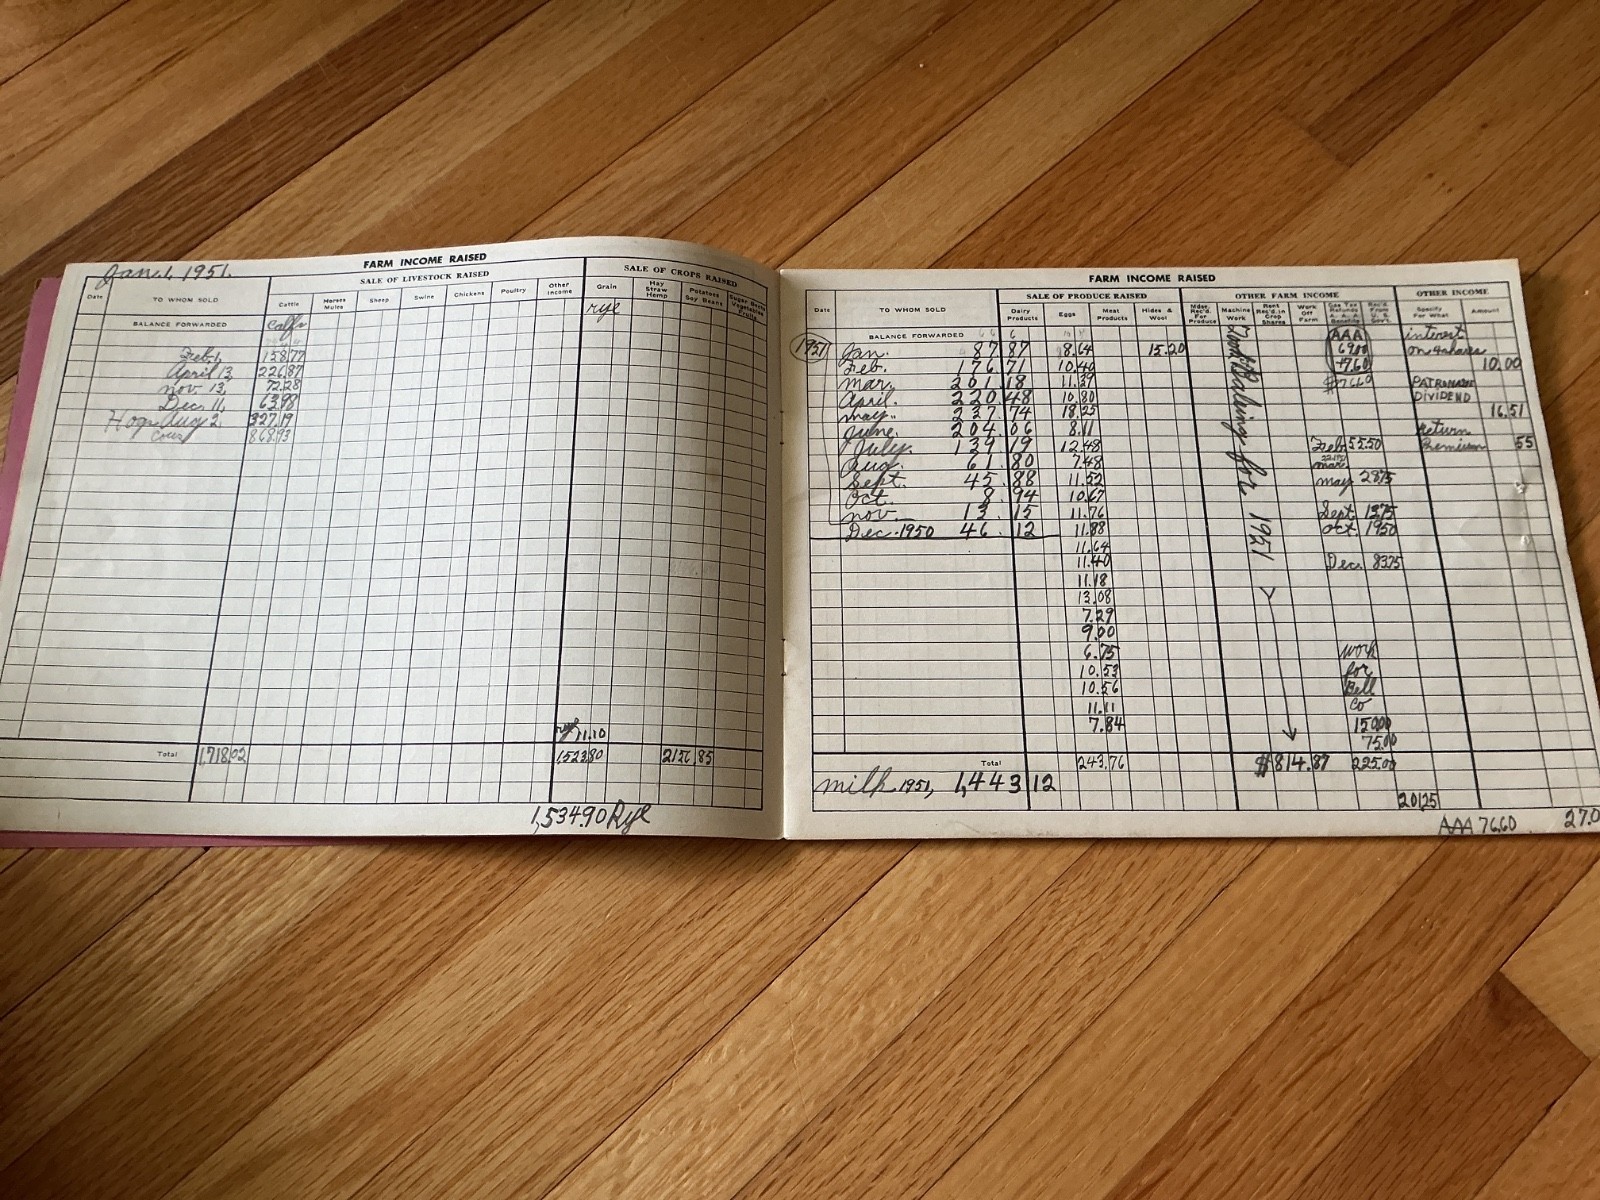 Jan. 1, 1951.
FARM INCOME RAISED
SALE OF LIVESTOCK RAISED
SALE OF CROPS RAISED
Date TO WHOM SOLD Cattle Horses Mules Sheep Swine Chickens Poultry Other Income Grain Hay Straw Hemp Potatoes Soy Beans Sugar Beets Vegetables Fruits
rye
BALANCE FORWARDED Calfs
Feb. 1, 158.77
April 13, 226.87
Nov. 13, 72.28
Dec. 11, 63.98
Hogs Aug 2, 327.19
Cows 868.93
rye 11.10
Total 1,718.02 1,523.80 2156.85
1,534.90 Rye
FARM INCOME RAISED
SALE OF PRODUCE RAISED OTHER FARM INCOME OTHER INCOME
Date TO WHOM SOLD Dairy Products Eggs Meat Products Hides & Wool Mdse. Rec'd. For Produce Machine Work Rent Rec'd. in Crop Shares Work Off Farm Gas Tax Refunds A. A. A. Benefits Rec'd. From U. S. Gov't. Specify For What Amount
BALANCE FORWARDED AAA interest
1951 Jan. 87.87 8.64 15.20 69.00 on 4 shares
Feb. 176.71 10.40 +7.60 10.00
Mar. 201.18 11.39 $76.60 PATRONAGE
April. 220.48 10.80 DIVIDEND
May. 237.74 18.25 16.51
June. 204.06 8.11 return
July. 139.19 12.48 Feb 55.50 Premium 55
Aug. 61.80 7.48 Mar.
Sept. 45.88 11.52 May 28.75
Oct. 8.94 10.67
Nov. 13.15 11.76 Sept. 13.75
Dec. 1950 46.12 11.88 Oct. 19.50
11.64
11.40 Dec. 83.75
11.18
13.08
7.29
9.00
6.75 work
10.53 for
10.56 Bell
11.11 Co
7.84 150.00
75.00
Baling for 1951
Total 243.76 $814.87 225.00
milk 1951, 1,443.12
201.25
AAA 76.60 27.0